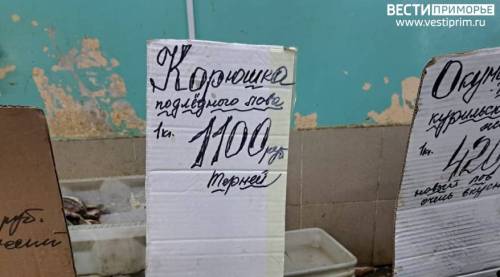 ВЕСТИ:ПРИМОРЬЕ
www.vestiprim.ru
Корюшка
подлёдного лова
1кг. 1100 руб
Терней
Окун
курильск
1кг. 420
новый лов
очень вкусн
руб.